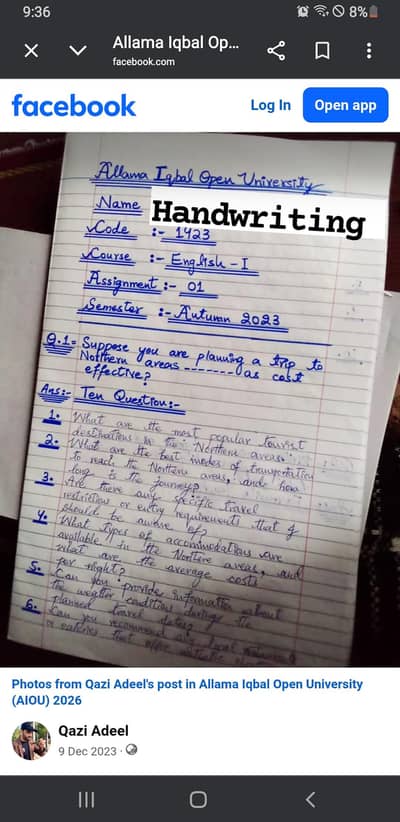 9:36
8%
Allama Iqbal Op...
facebook.com
facebook
Log In
Open app
Allama Iqbal Open University
Name
Handwriting
Code :- 1423
Course :- English - I
Assignment :- 01
Semester :- Autumn 2023
Q.1:- Suppose you are planning a trip to
Northern areas ------- as cost
effective?
Ans:- Ten Question:-
1. What are the most popular tourist
destinations in the Northern areas?
2. What are the best modes of transportation
to reach the Northern areas, and how
long is the journey?
3. Are there any specific travel
restriction or entry requirements that I
should be aware of?
4. What types of accommodations are
available in the Northern areas, and
what are the average costs
per night?
5. Can you provide information about
the weather condition during the
planned travel dates?
6. Can you recommend any local
or eateries that offer
Photos from Qazi Adeel's post in Allama Iqbal Open University
(AIOU) 2026
Qazi Adeel
9 Dec 2023